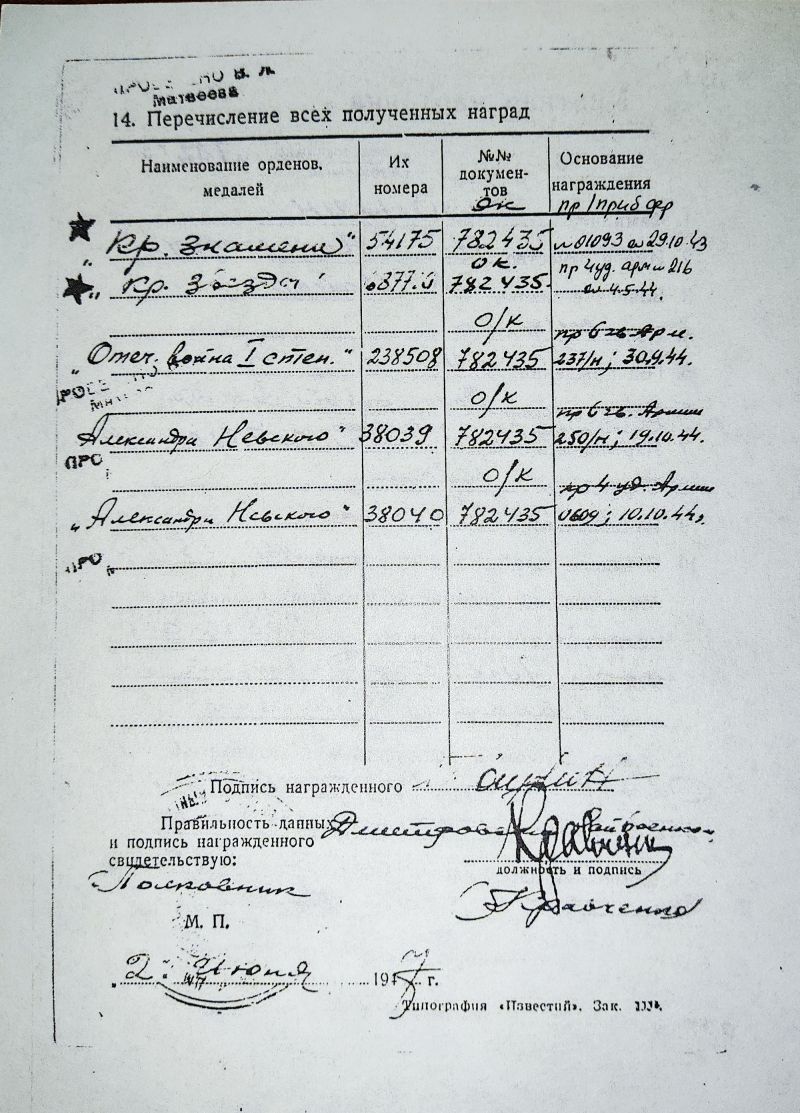 Матвеева
14. Перечисление всех полученных наград
Наименование орденов, медалей
Их номера
№№ документов
Основание награждения
ок
пр 1 приб фр
„Кр. Знамени" 54175 782435 № 01093 от 29.10.43
ок. пр 4 уд. арм № 216
„Кр. Звезда" 782435. от 4.5.44.
о/к пр 6 гв. Арм.
„Отеч. война I степ." 238508 782435 237/н; 30.9.44.
о/к пр 6 гв. Армии
Александра Невского" 38039 782435 250/н; 19.10.44.
о/к пр 4 уд. Армии
„Александра Невского" 38040 782435 0609; 10.10.44.
ПРО
ПРО
Подпись награжденного
Правильность данных Дмитровский райвоенком
и подпись награжденного
свидетельствую:
должность и подпись
Полковник Кравченко
М. П.
„2" Июня 1947 г.
Типография «Известий». Зак.